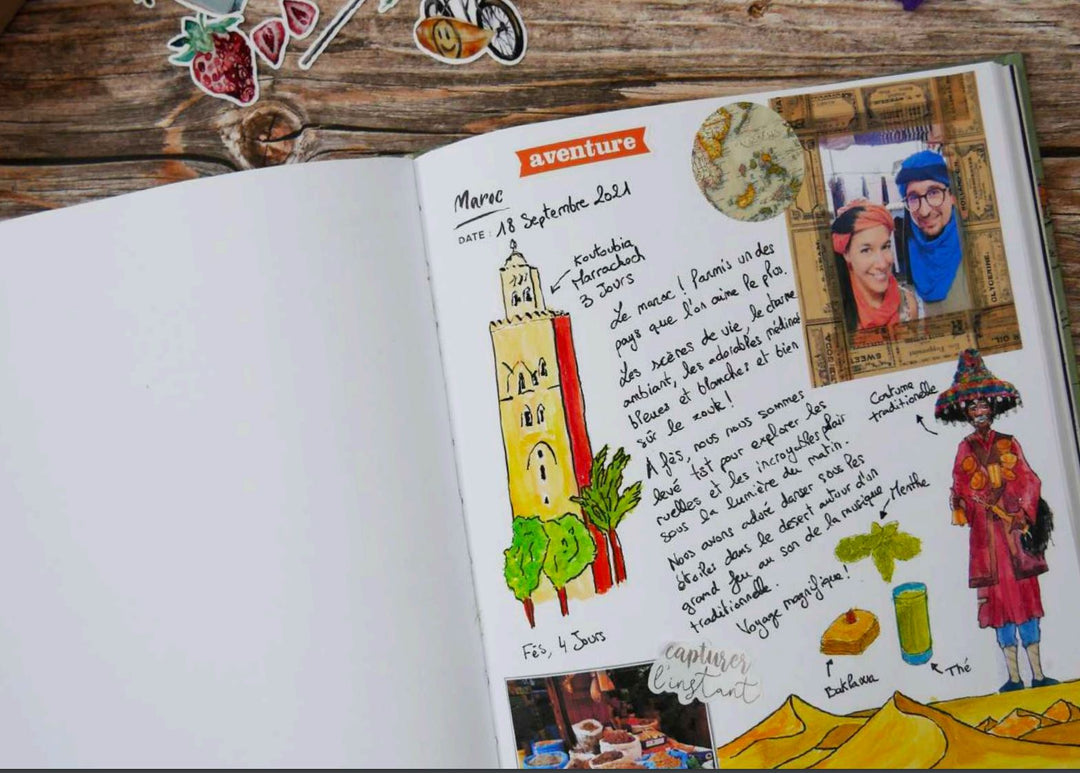 aventure
Maroc
DATE : 18 Septembre 2021
Koutoubia
Marrachech
3 Jours
Le maroc ! Parmis un des
pays que l'on aime le plus.
Les scènes de vie, le charme
ambiant, les adorables médinas
bleues et blanches et bien
sûr le zouk !
À fès, nous nous sommes
levé tôt pour explorer les
ruelles et les incroyables
sous la lumière du matin.
Nous avons adoré danser sous les
étoiles dans le désert autour d'un
grand feu au son de la musique
traditionnelle.
Voyage magnifique !
Costume
traditionelle
Menthe
Baklawa
Thé
Fès, 4 Jours
capturer
l'instant
GLYCERINE.
SWEET